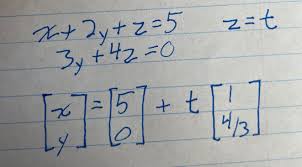 x + 2y + z = 5 z = t
3y + 4z = 0
[x y] = [5 0] + t [1 4/3]